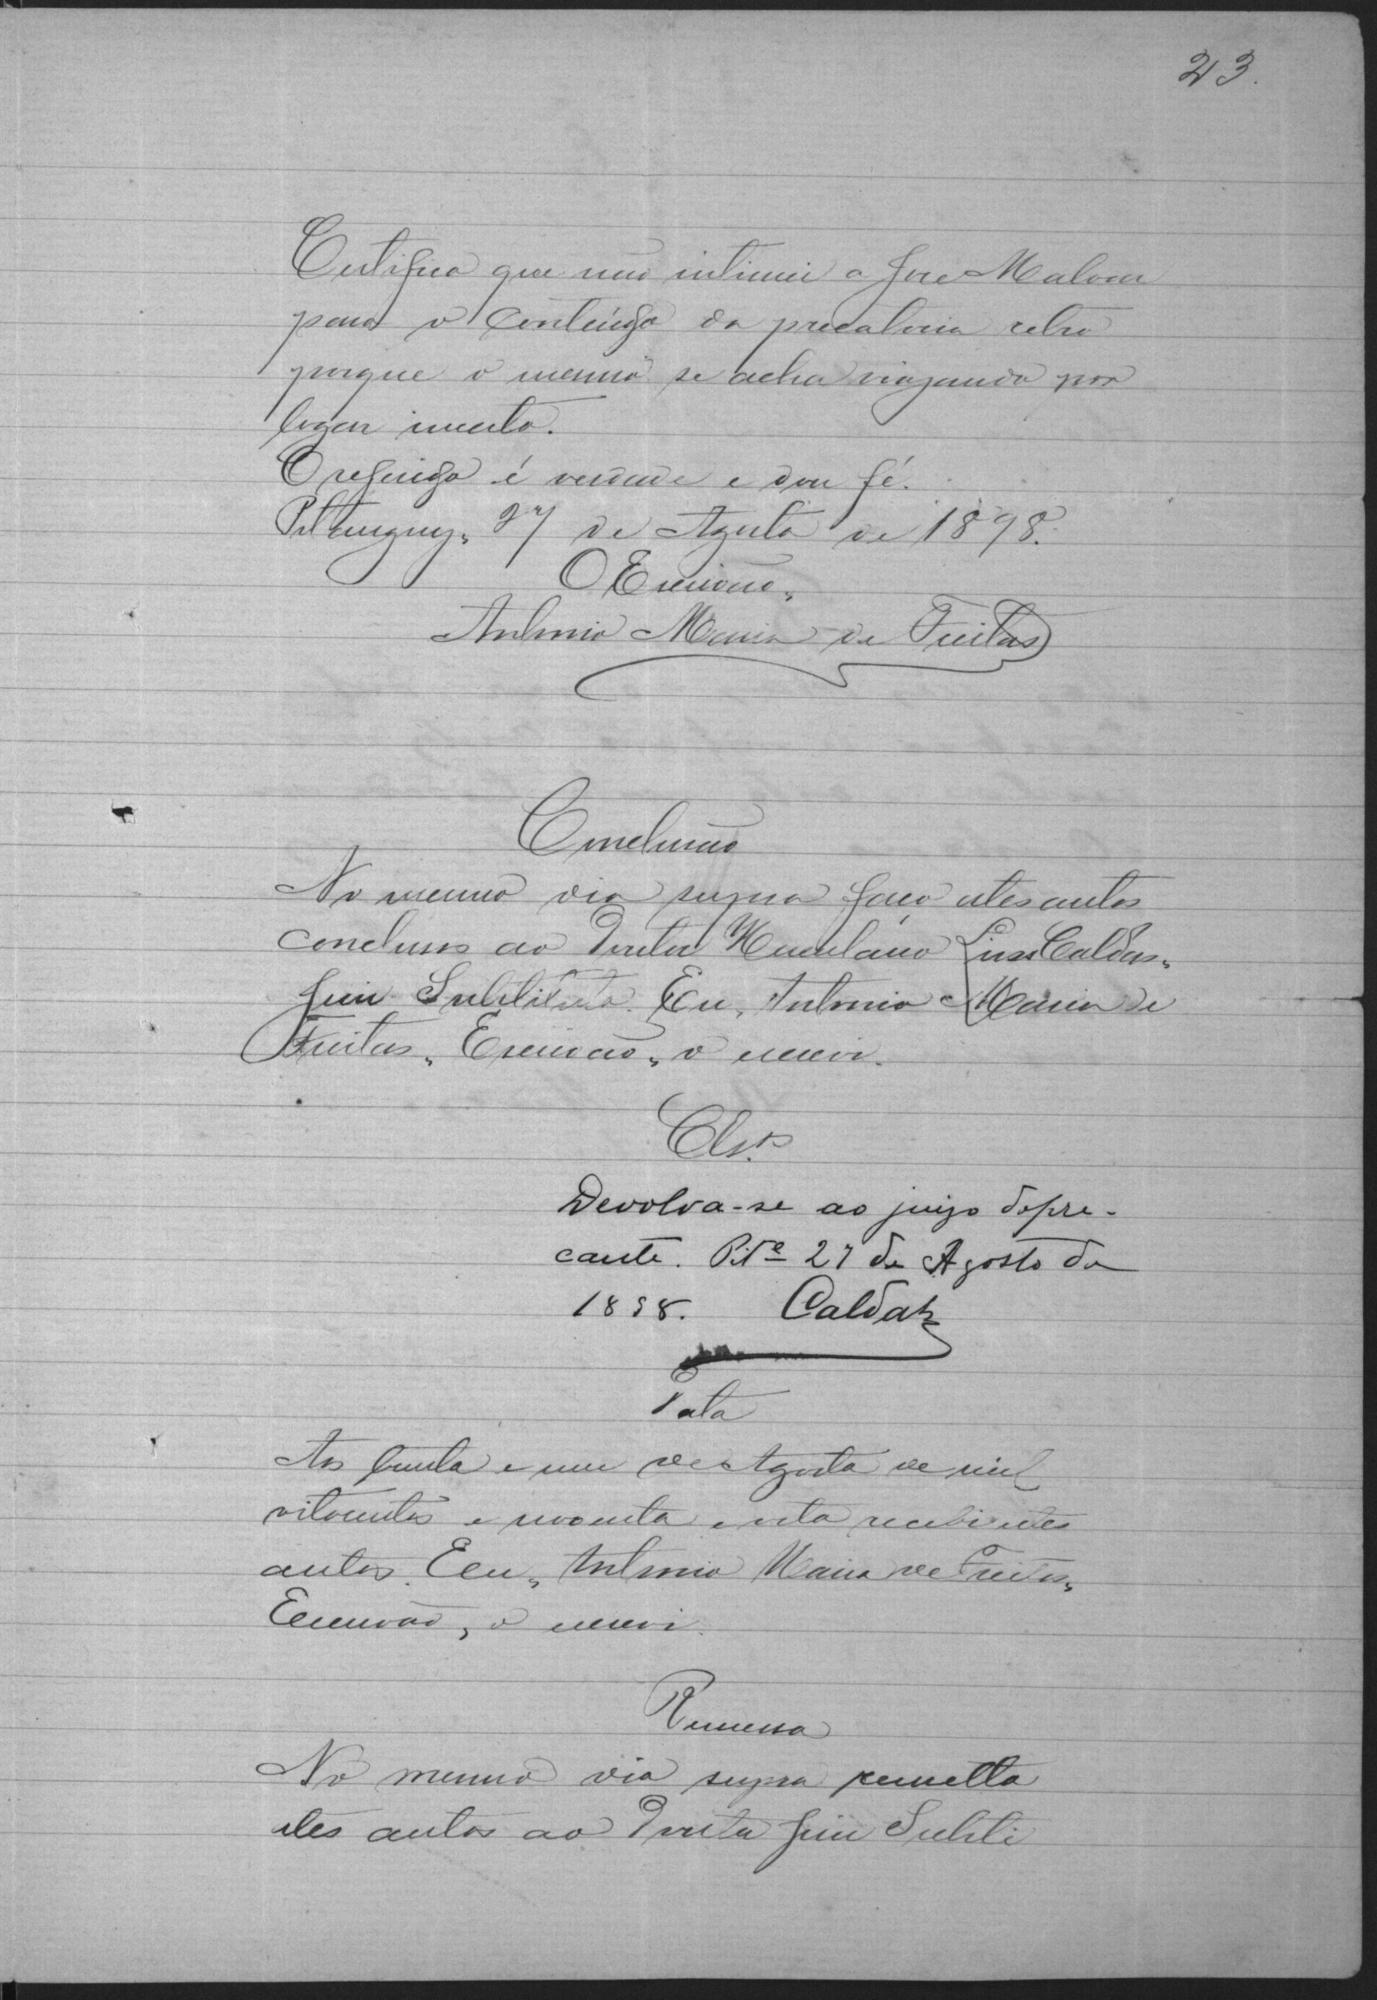 23.
Certifico que não intimei a Jose Malvar
para o contéudo da precatoria retro
porque o mesmo se acha viajando por
logar incerto.
O referido é verdade e dou fé.
Pitanguy, 27 de Agosto de 1898.
O Escrivão,
Antonio Maria de Freitas
Conclusão
No mesmo dia supra faço estes autos
conclusos ao Doutor Herculano Lins Caldas,
Juiz Substituto. Eu, Antonio Maria de
Freitas, Escrivão, o escrevi.
Cls.os
Devolva-se ao juizo depre-
cante. Pit.e 27 de Agosto de
1898. Caldas
Data
Aos trinta e um de Agosto de mil
oitocentos e noventa e oito recebi estes
autos. Eu, Antonio Maria de Freitas,
Escrivão, o escrevi.
Remessa
No mesmo dia supra remetto
estes autos ao Doutor Juiz Substi